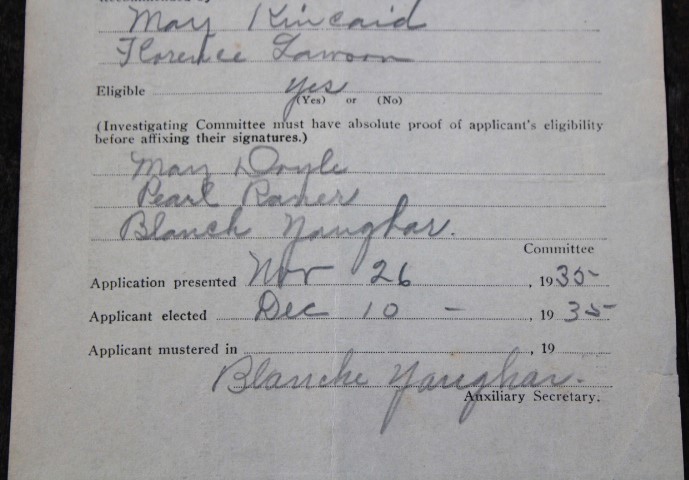 Recommended by
May Kincaid
Florence Lawson
Eligible Yes
(Yes) or (No)
(Investigating Committee must have absolute proof of applicant's eligibility
before affixing their signatures.)
May Doyle
Pearl
Blanch Yaughar.
Committee
Application presented Nov 26, 1935
Applicant elected Dec 10 -, 1935
Applicant mustered in , 19
Blanche Yaughar.
Auxiliary Secretary.